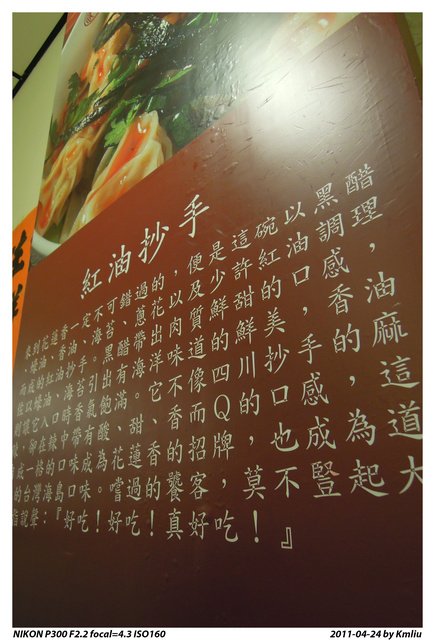 紅油抄手
來到花蓮香一定不可錯過的,便是這碗以黑醋
蠔油、香油、海苔、蔥花以及少許紅油調理,
而成的紅油抄手。黑醋帶出肉質鮮甜的口感,
佐以蠔油、海苔引出海洋味道的鮮美,香油
則讓它入口時香氣飽滿。它不像四川抄手的麻
,卻在辣中帶有酸、甜、香而Q的口感,這
成一格的口味成為花蓮香的招牌,也成為道
的台灣海島口味。嚐過的饕客,莫不豎起大
指說聲:『好吃!好吃!真好吃!』
NIKON P300 F2.2 focal=4.3 ISO160
2011-04-24 by Kmliu